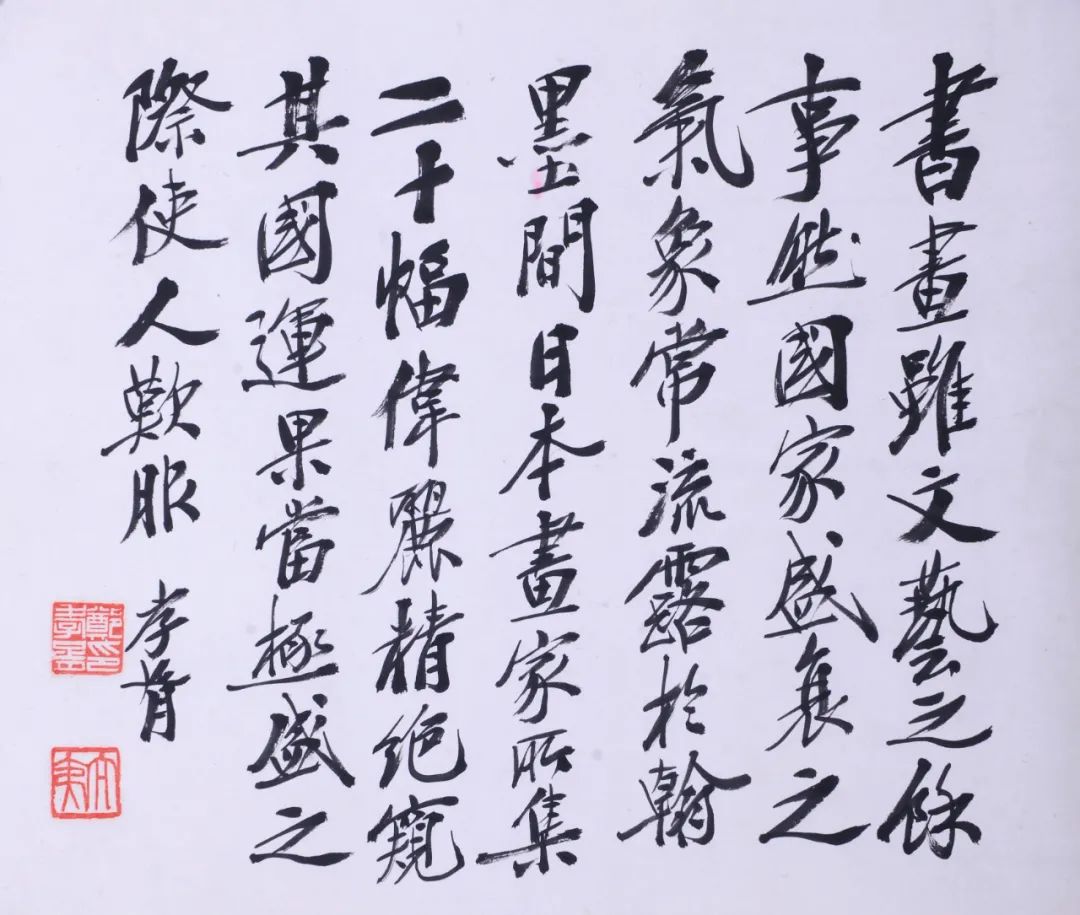 書畫雖文藝之餘
事然國家盛衰之
氣象常流露於翰
墨間日本畫家所集
二十幅偉麗精絶窺
其國運果當極盛之
際使人歎服
孝胥
鄭印孝胥